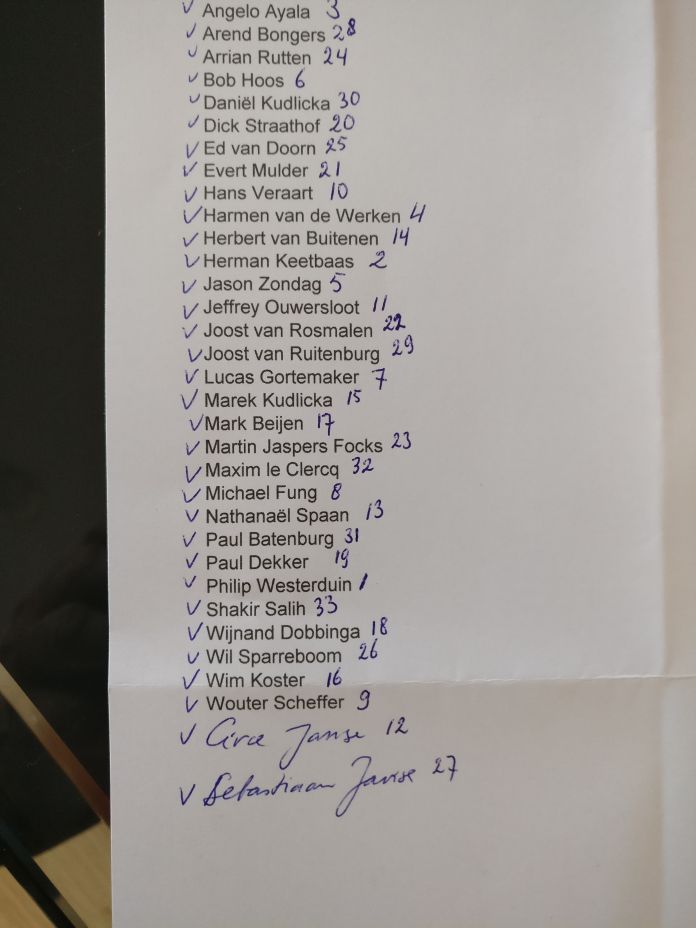 ✓ Angelo Ayala 3
✓ Arend Bongers 28
✓ Arrian Rutten 24
✓ Bob Hoos 6
✓ Daniël Kudlicka 30
✓ Dick Straathof 20
✓ Ed van Doorn 25
✓ Evert Mulder 21
✓ Hans Veraart 10
✓ Harmen van de Werken 4
✓ Herbert van Buitenen 14
✓ Herman Keetbaas 2
✓ Jason Zondag 5
✓ Jeffrey Ouwersloot 11
✓ Joost van Rosmalen 22
✓ Joost van Ruitenburg 29
✓ Lucas Gortemaker 7
✓ Marek Kudlicka 15
✓ Mark Beijen 17
✓ Martin Jaspers Focks 23
✓ Maxim le Clercq 32
✓ Michael Fung 8
✓ Nathanaël Spaan 13
✓ Paul Batenburg 31
✓ Paul Dekker 19
✓ Philip Westerduin 1
✓ Shakir Salih 33
✓ Wijnand Dobbinga 18
✓ Wil Sparreboom 26
✓ Wim Koster 16
✓ Wouter Scheffer 9
✓ Janse 12
✓ Sebastiaan Janse 27